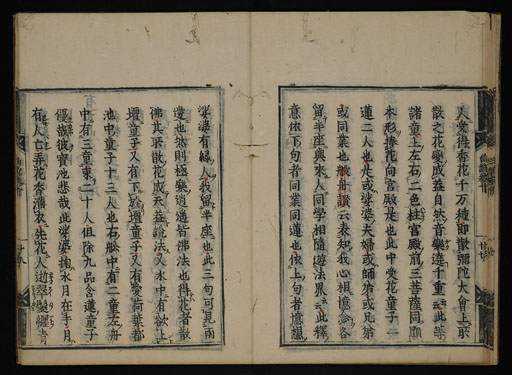 人愛徃香花千万種即散彌陀大會上所
散之花變成蓋自然音樂遶千重云此等
諸童上左右二色柱宮殿前三菩薩同願
本形捧花向宮殿是也此中受花童子
蓮二人也是或娑婆夫婦或師弟或兄弟
或同業也般舟讃云表知我心相憶念各
留半座與來人同學相隨遊法界云此釋
意依下句者同業同蓮也依上句者憶想
娑婆有縁人我留半座也此三句可見両
邊也然則極樂逍遥皆佛法也得花者散
佛其所散花成天蓋說法又水中有欲上
壇童子又有下於壇童子又有愛荷葉都
池中童子十三人也右舩中有二童左舟
中有三童東二十人但除九品含蓮童子
優哉彼寳池悲哉此娑婆掬水月在手
有人亡弄花香滿衣先花人逝翠